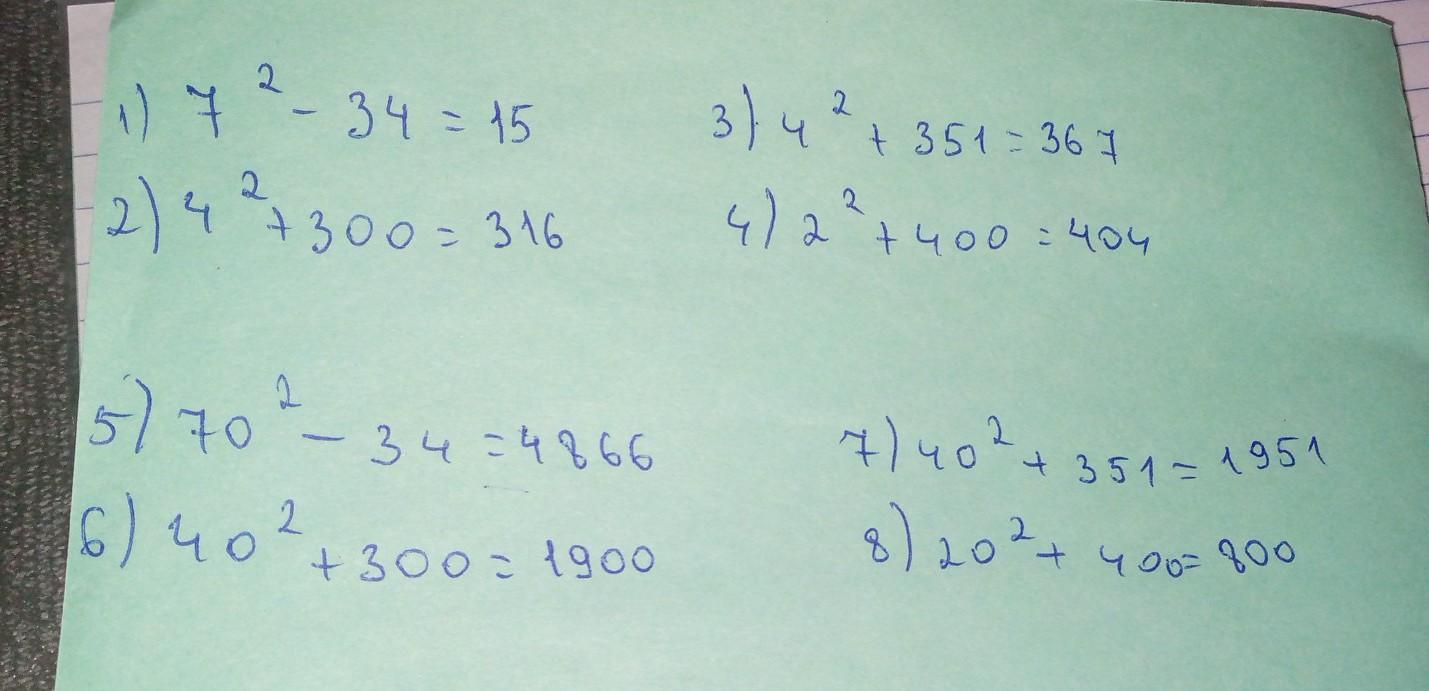 1) 7² - 34 = 15
2) 4² + 300 = 316
3) 4² + 351 = 367
4) 2² + 400 = 404
5) 70² - 34 = 4866
6) 40² + 300 = 1900
7) 40² + 351 = 1951
8) 20² + 400 = 800